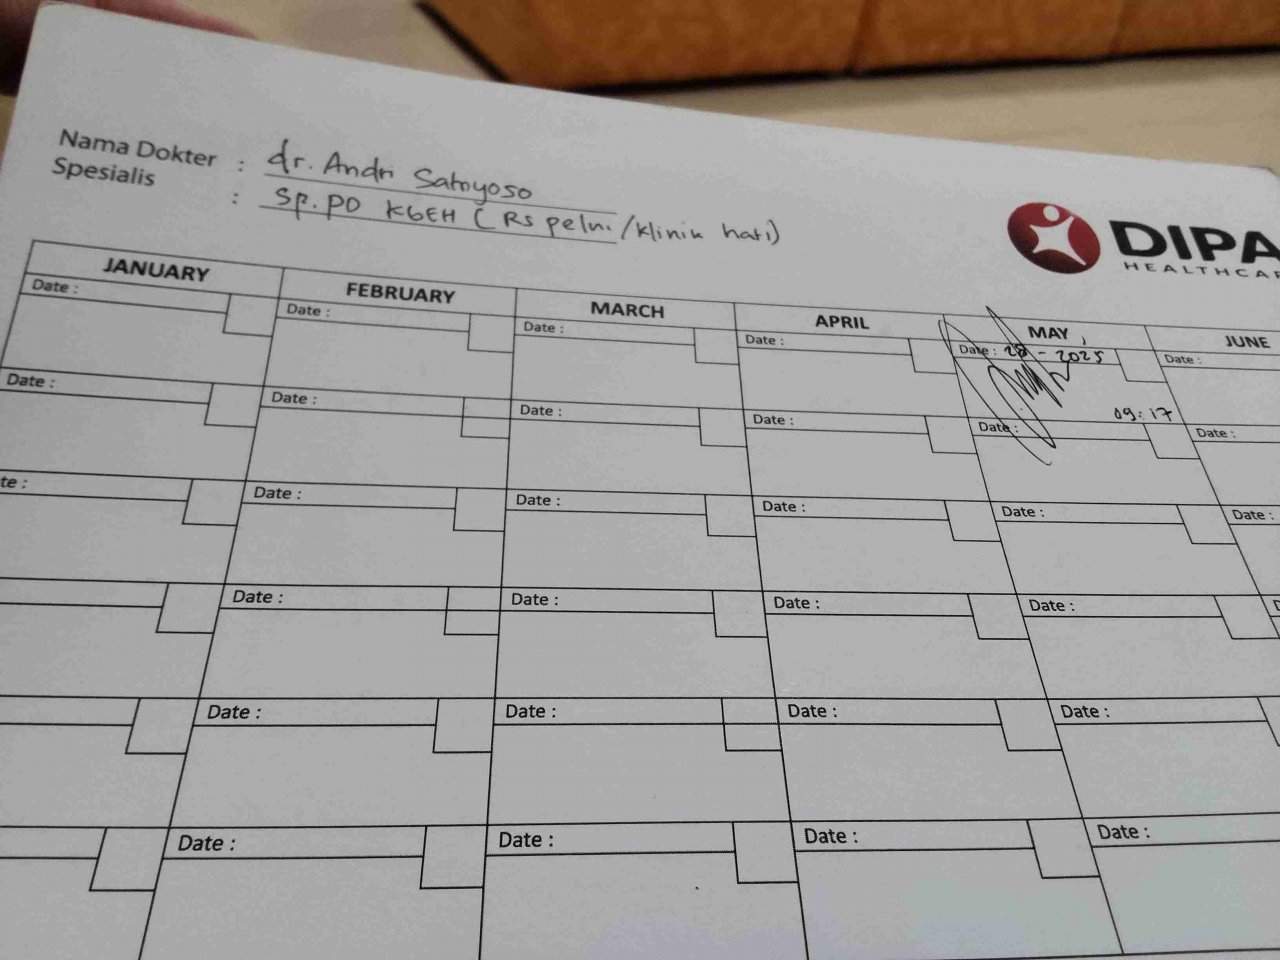 Nama Dokter : dr. Andri Satryoso
Spesialis : Sp.PD KGEH (RS pelni/klinik hati)
DIPA
HEALTHCAR
JANUARY FEBRUARY MARCH APRIL MAY JUNE
Date : Date : Date : Date : Date : 28 - 2025 Date :
09:17
Date : Date : Date : Date : Date : Date :
te : Date : Date : Date : Date : Date :
Date : Date : Date : Date : D
Date : Date : Date : Date :
Date : Date : Date : Date :